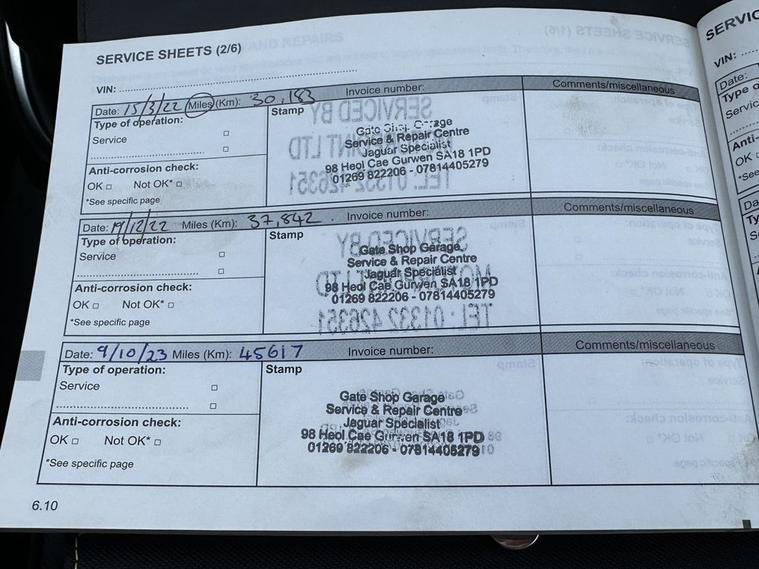 SERVICE SHEETS (2/6)
VIN:
Date: 15/3/22 Miles (Km): 30,183 Invoice number: Comments/miscellaneous
Type of operation:
Service
Anti-corrosion check:
OK □ Not OK* □
*See specific page
Stamp
Gate Shop Garage
Service & Repair Centre
Jaguar Specialist
98 Heol Cae Gurwen SA18 1PD
01269 822206 - 07814405279
Date: 19/12/22 Miles (Km): 37,842 Invoice number: Comments/miscellaneous
Type of operation:
Service
Anti-corrosion check:
OK □ Not OK* □
*See specific page
Stamp
Gate Shop Garage
Service & Repair Centre
Jaguar Specialist
98 Heol Cae Gurwen SA18 1PD
01269 822206 - 07814405279
Date: 9/10/23 Miles (Km): 45617 Invoice number: Comments/miscellaneous
Type of operation:
Service
Anti-corrosion check:
OK □ Not OK* □
*See specific page
Stamp
Gate Shop Garage
Service & Repair Centre
Jaguar Specialist
98 Heol Cae Gurwen SA18 1PD
01269 822206 - 07814405279
6.10
VIN:
Date: